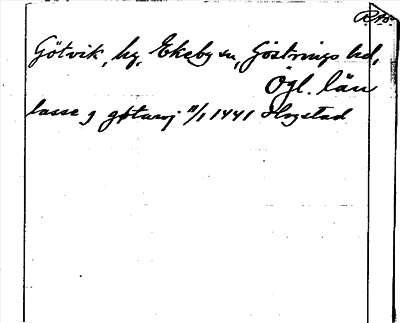 Götvik, hg, Ekeby sn, Göstrings hd,
Ögl. län
lasse j gøtavj 11/1 1441 Hogstad